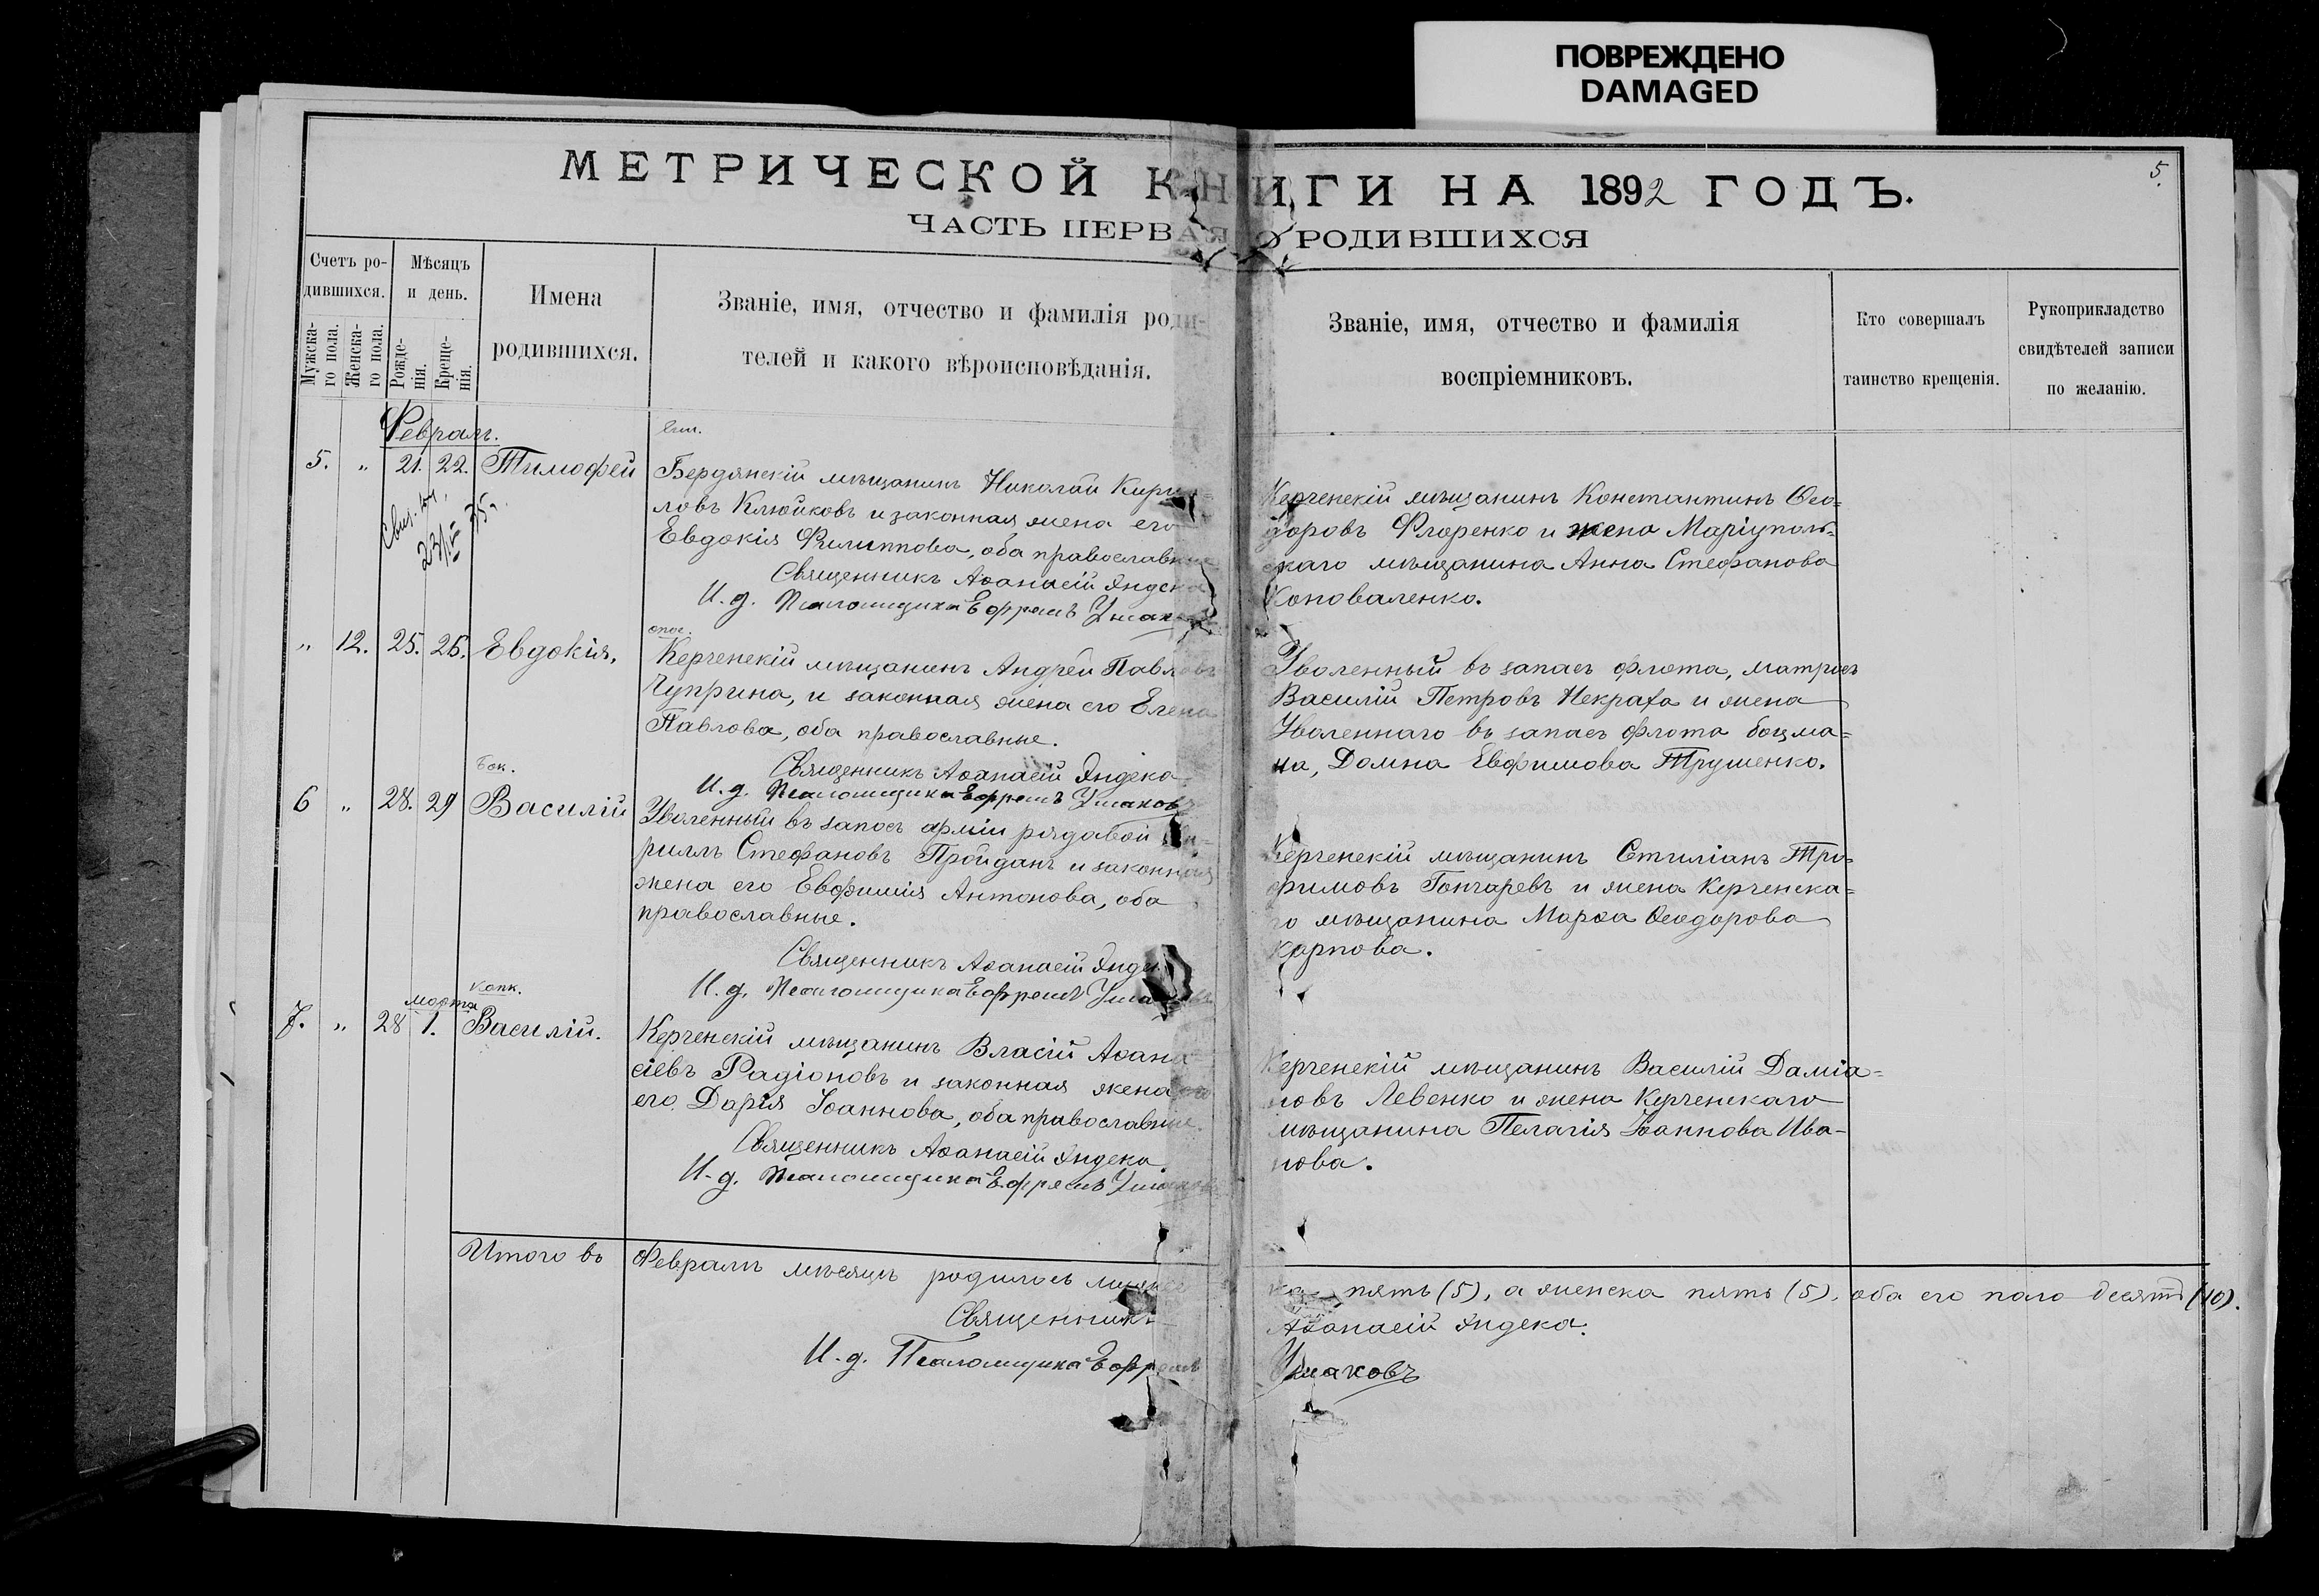 ПОВРЕЖДЕНО
DAMAGED
5.
МЕТРИЧЕСКОЙ КНИГИ НА 1892 ГОДЪ.
ЧАСТЬ ПЕРВАЯ О РОДИВШИХСЯ
Счетъ ро-
дившихся.
Мужска-
го пола.
Женска-
го пола.
Мѣсяцъ
и день.
Рожде-
нія.
Креще-
нія.
Имена
родившихся.
Званіе, имя, отчество и фамилія роди-
телей и какого вѣроисповѣданія.
Званіе, имя, отчество и фамилія
воспріемниковъ.
Кто совершалъ
таинство крещенія.
Рукоприкладство
свидѣтелей записи
по желанію.
Февраль.
5. " 21. 22. Тимофей
Бердянскій мѣщанинъ Николай Кирил=
ловъ Клюйковъ и законная жена его
Евдокія Филиппова, оба православные
Священникъ Аѳанасій Яндека
И. д. Псаломщика Ефремъ Ушаковъ
Керченскій мѣщанинъ Константинъ Ѳео=
доровъ Флоренко и жена Маріуполь=
скаго мѣщанина Анна Стефанова
Коноваленко.
" 12. 25. 26. Евдокія.
Керченскій мѣщанинъ Андрей Павловъ
Чуприна, и законная жена его Елена
Павлова, оба православные.
Священникъ Аѳанасій Яндека
И. д. Псаломщика Ефремъ Ушаковъ
Уволенный въ запасъ флота, матросъ
Василій Петровъ Некраха и жена
Уволеннаго въ запасъ флота боцма=
на, Домна Евфимова Трушенко.
6 " 28. 29 Василій
Уволенный въ запасъ арміи рядавой Ки-
риллъ Стефановъ Пройданъ и законная
жена его Евфимія Антонова, оба
православные.
Священникъ Аѳанасій Яндека
И. д. Псаломщика Ефремъ Ушаковъ
Керченскій мѣщанинъ Стиліанъ Тро=
фимовъ Гончаревъ и жена Керченска=
го мѣщанина Марѳа Ѳеодорова
Карпова.
марта
7. " 28 1. Василій.
Керченскій мѣщанинъ Власій Аѳана
сіевъ Радіоновъ и законная жена
его Дарія Іоаннова, оба православные.
Священникъ Аѳанасій Яндека.
И. д. Псаломщика Ефремъ Ушаковъ
Керченскій мѣщанинъ Василій Даміа=
новъ Левенко и жена Керченскаго
мѣщанина Пелагія Іоаннова Ива-
нова.
Итого въ Февралѣ мѣсяцѣ родилось мужес
ка пять (5), а женска пять (5), оба его пола десять (10).
Священникъ Аѳанасій Яндека.
И. д. Псаломщика Ефремъ Ушаковъ